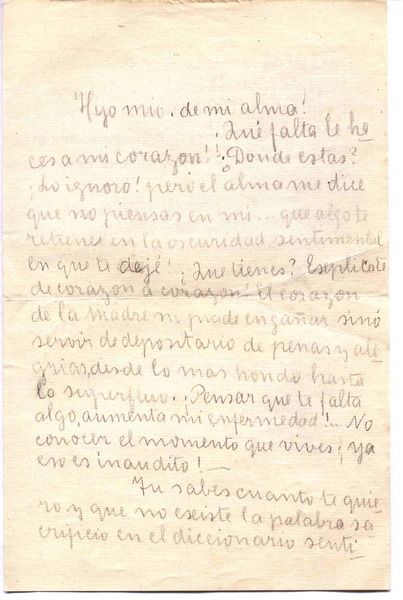 Hijo mio. de mi alma!
¡Qué falta le ha
ces a mi corazon!! ¿Donde estas?
¡Lo ignoro! pero el alma me dice
que no piensas en mi... que algo te
retiene en la oscuridad sentimental
en que te dejé! ¿Que tienes? Eseplicate
de corazon a corazon! El corazon
de la madre no puede engañar sinó
servir de depositario de penas y ale
grias, desde lo mas hondo hasta
lo superfluo. ¡Pensar que te falta
algo, aumenta mi enfermedad!... No
conocer el momento que vives, ¡ya
eso es inaudito!—
Tu sabes cuanto te quie
ro y que no esiste la palabra sa
crificio en el diccionario senti